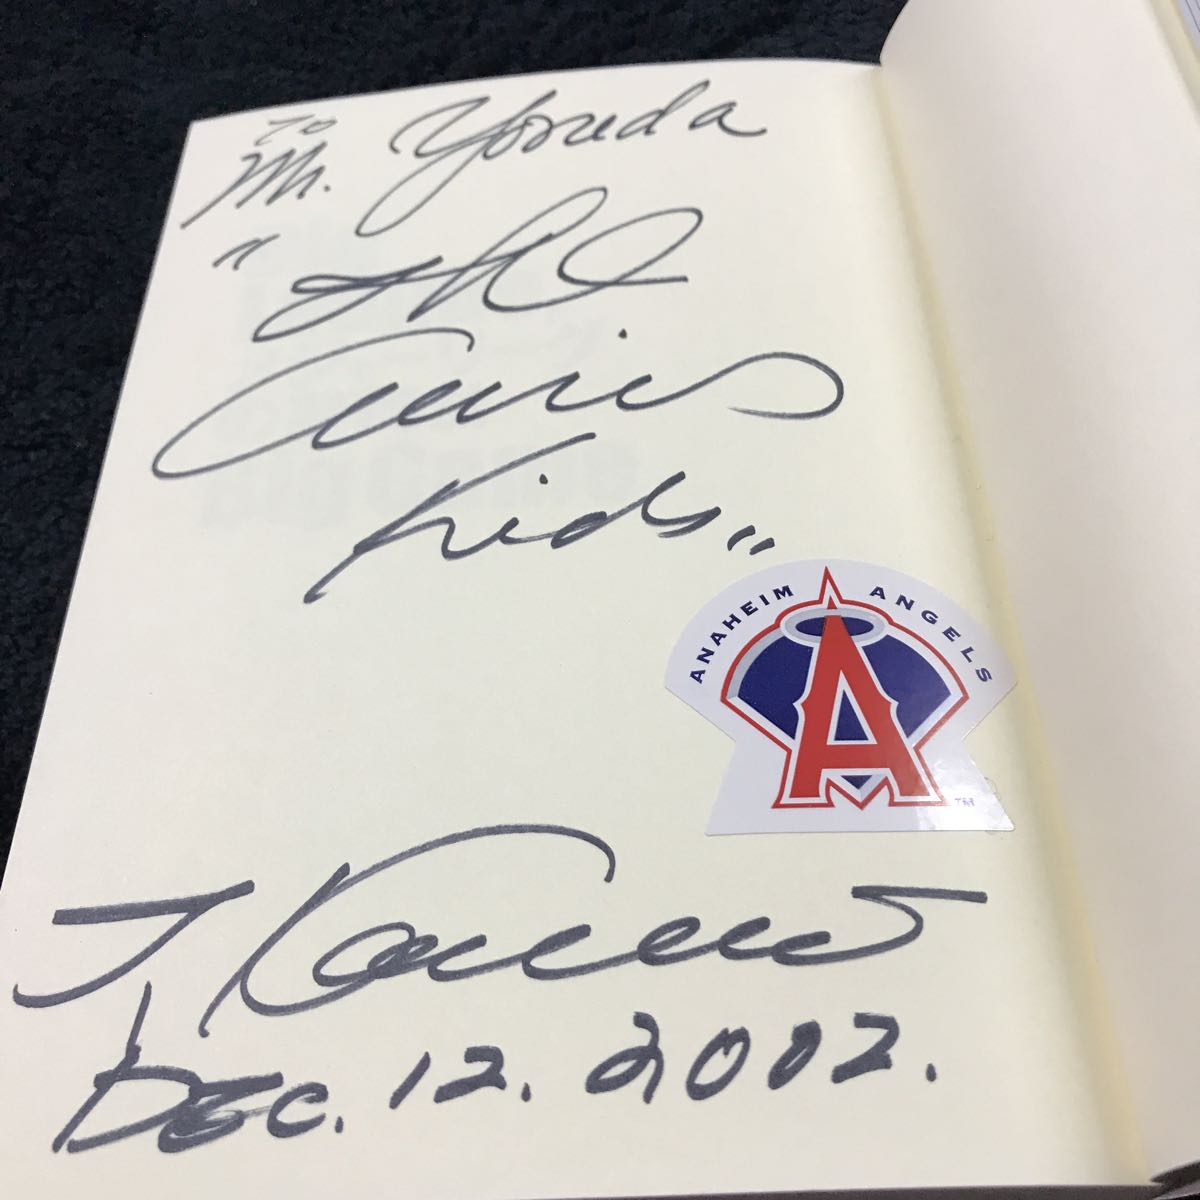 To
Mr. Yoneda
"The
Kids"
ANAHEIM ANGELS
TM
Dec. 12. 2002.